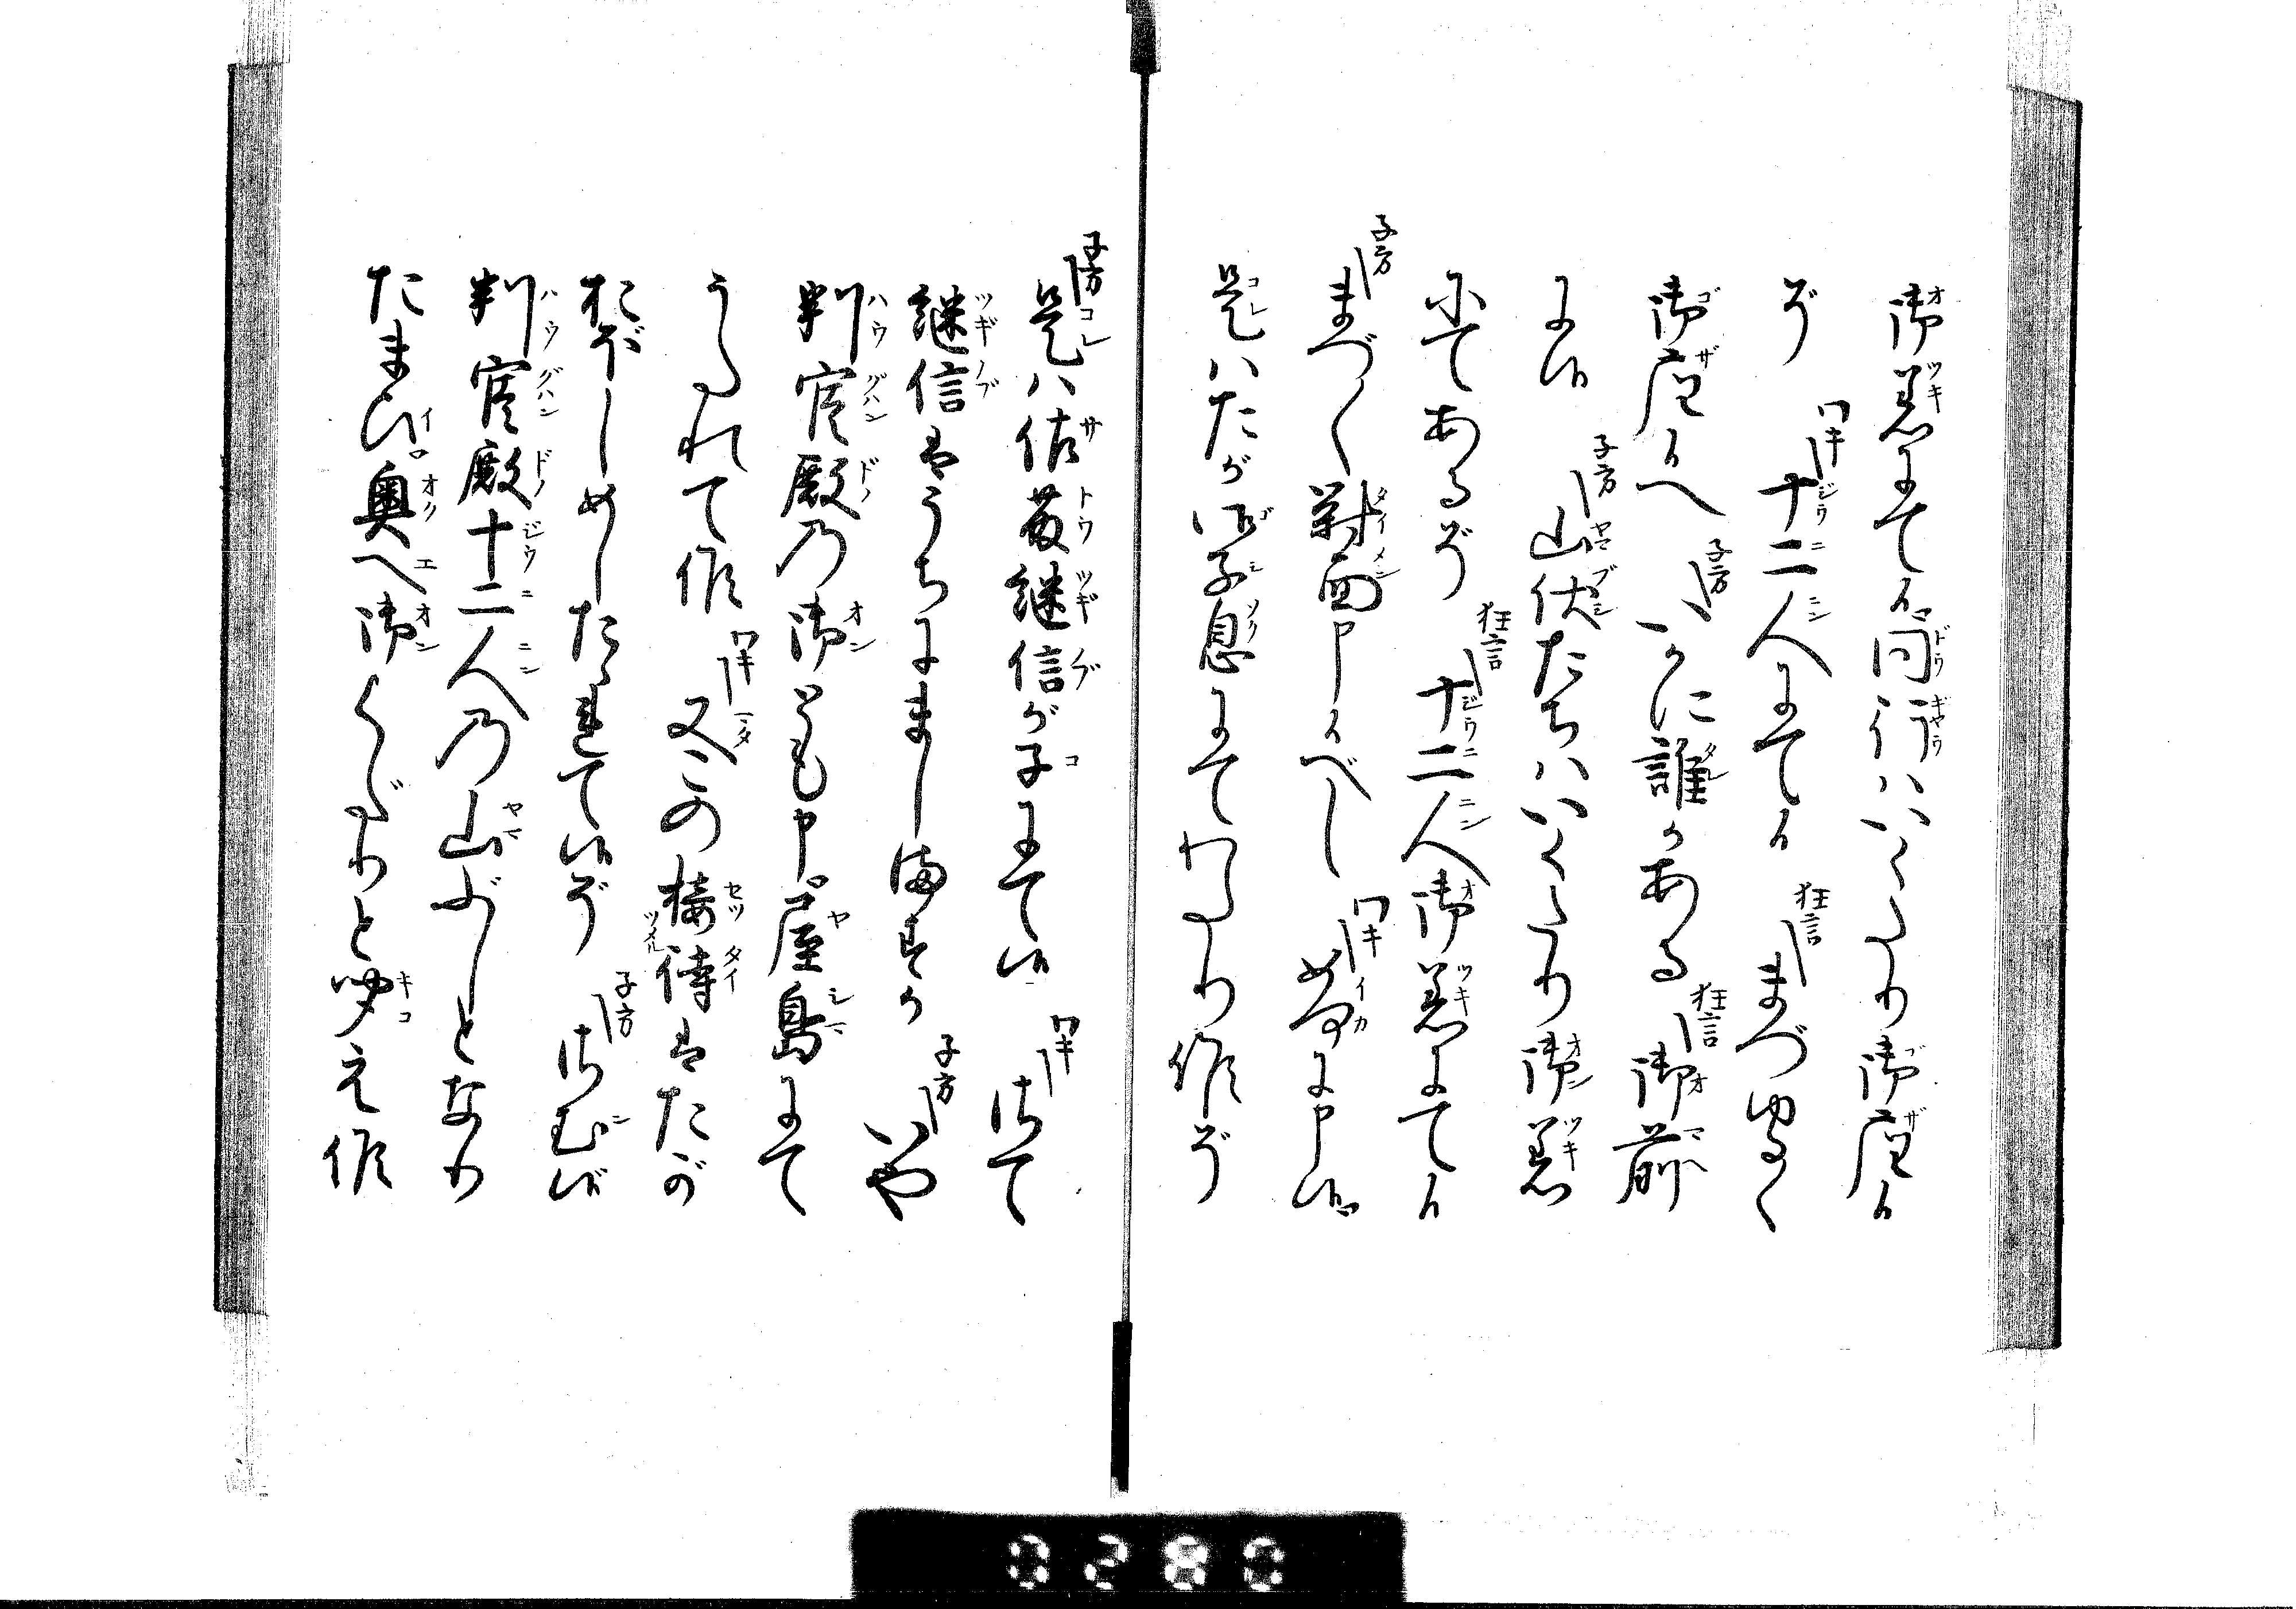 御着にて候同行ハいくたり御座候
ぞ ワキ 十二人にて候 狂言 まづゆる〱
御座候へ 子方 いかに誰かある 狂言 御前
に候 子方 山伏たちハいくたり御着
にてあるぞ 狂言 十二人御着にて候
子方 まづ〱對面申候べし ワキ 如何に申候
是ハたが御子息にてわたり候ぞ
子方 是ハ佐藤継信が子にて候 ワキ さて
継信はうちにましますか 子方 いや
判官殿乃御とも申屋島にて
うたれて候 ワキ 又この接待はたが
おぼしめしたたれて候ぞ 子方 さむ候
判官殿十二人乃山ぶしとなり
たまひ奥へ御くだりと聞え候